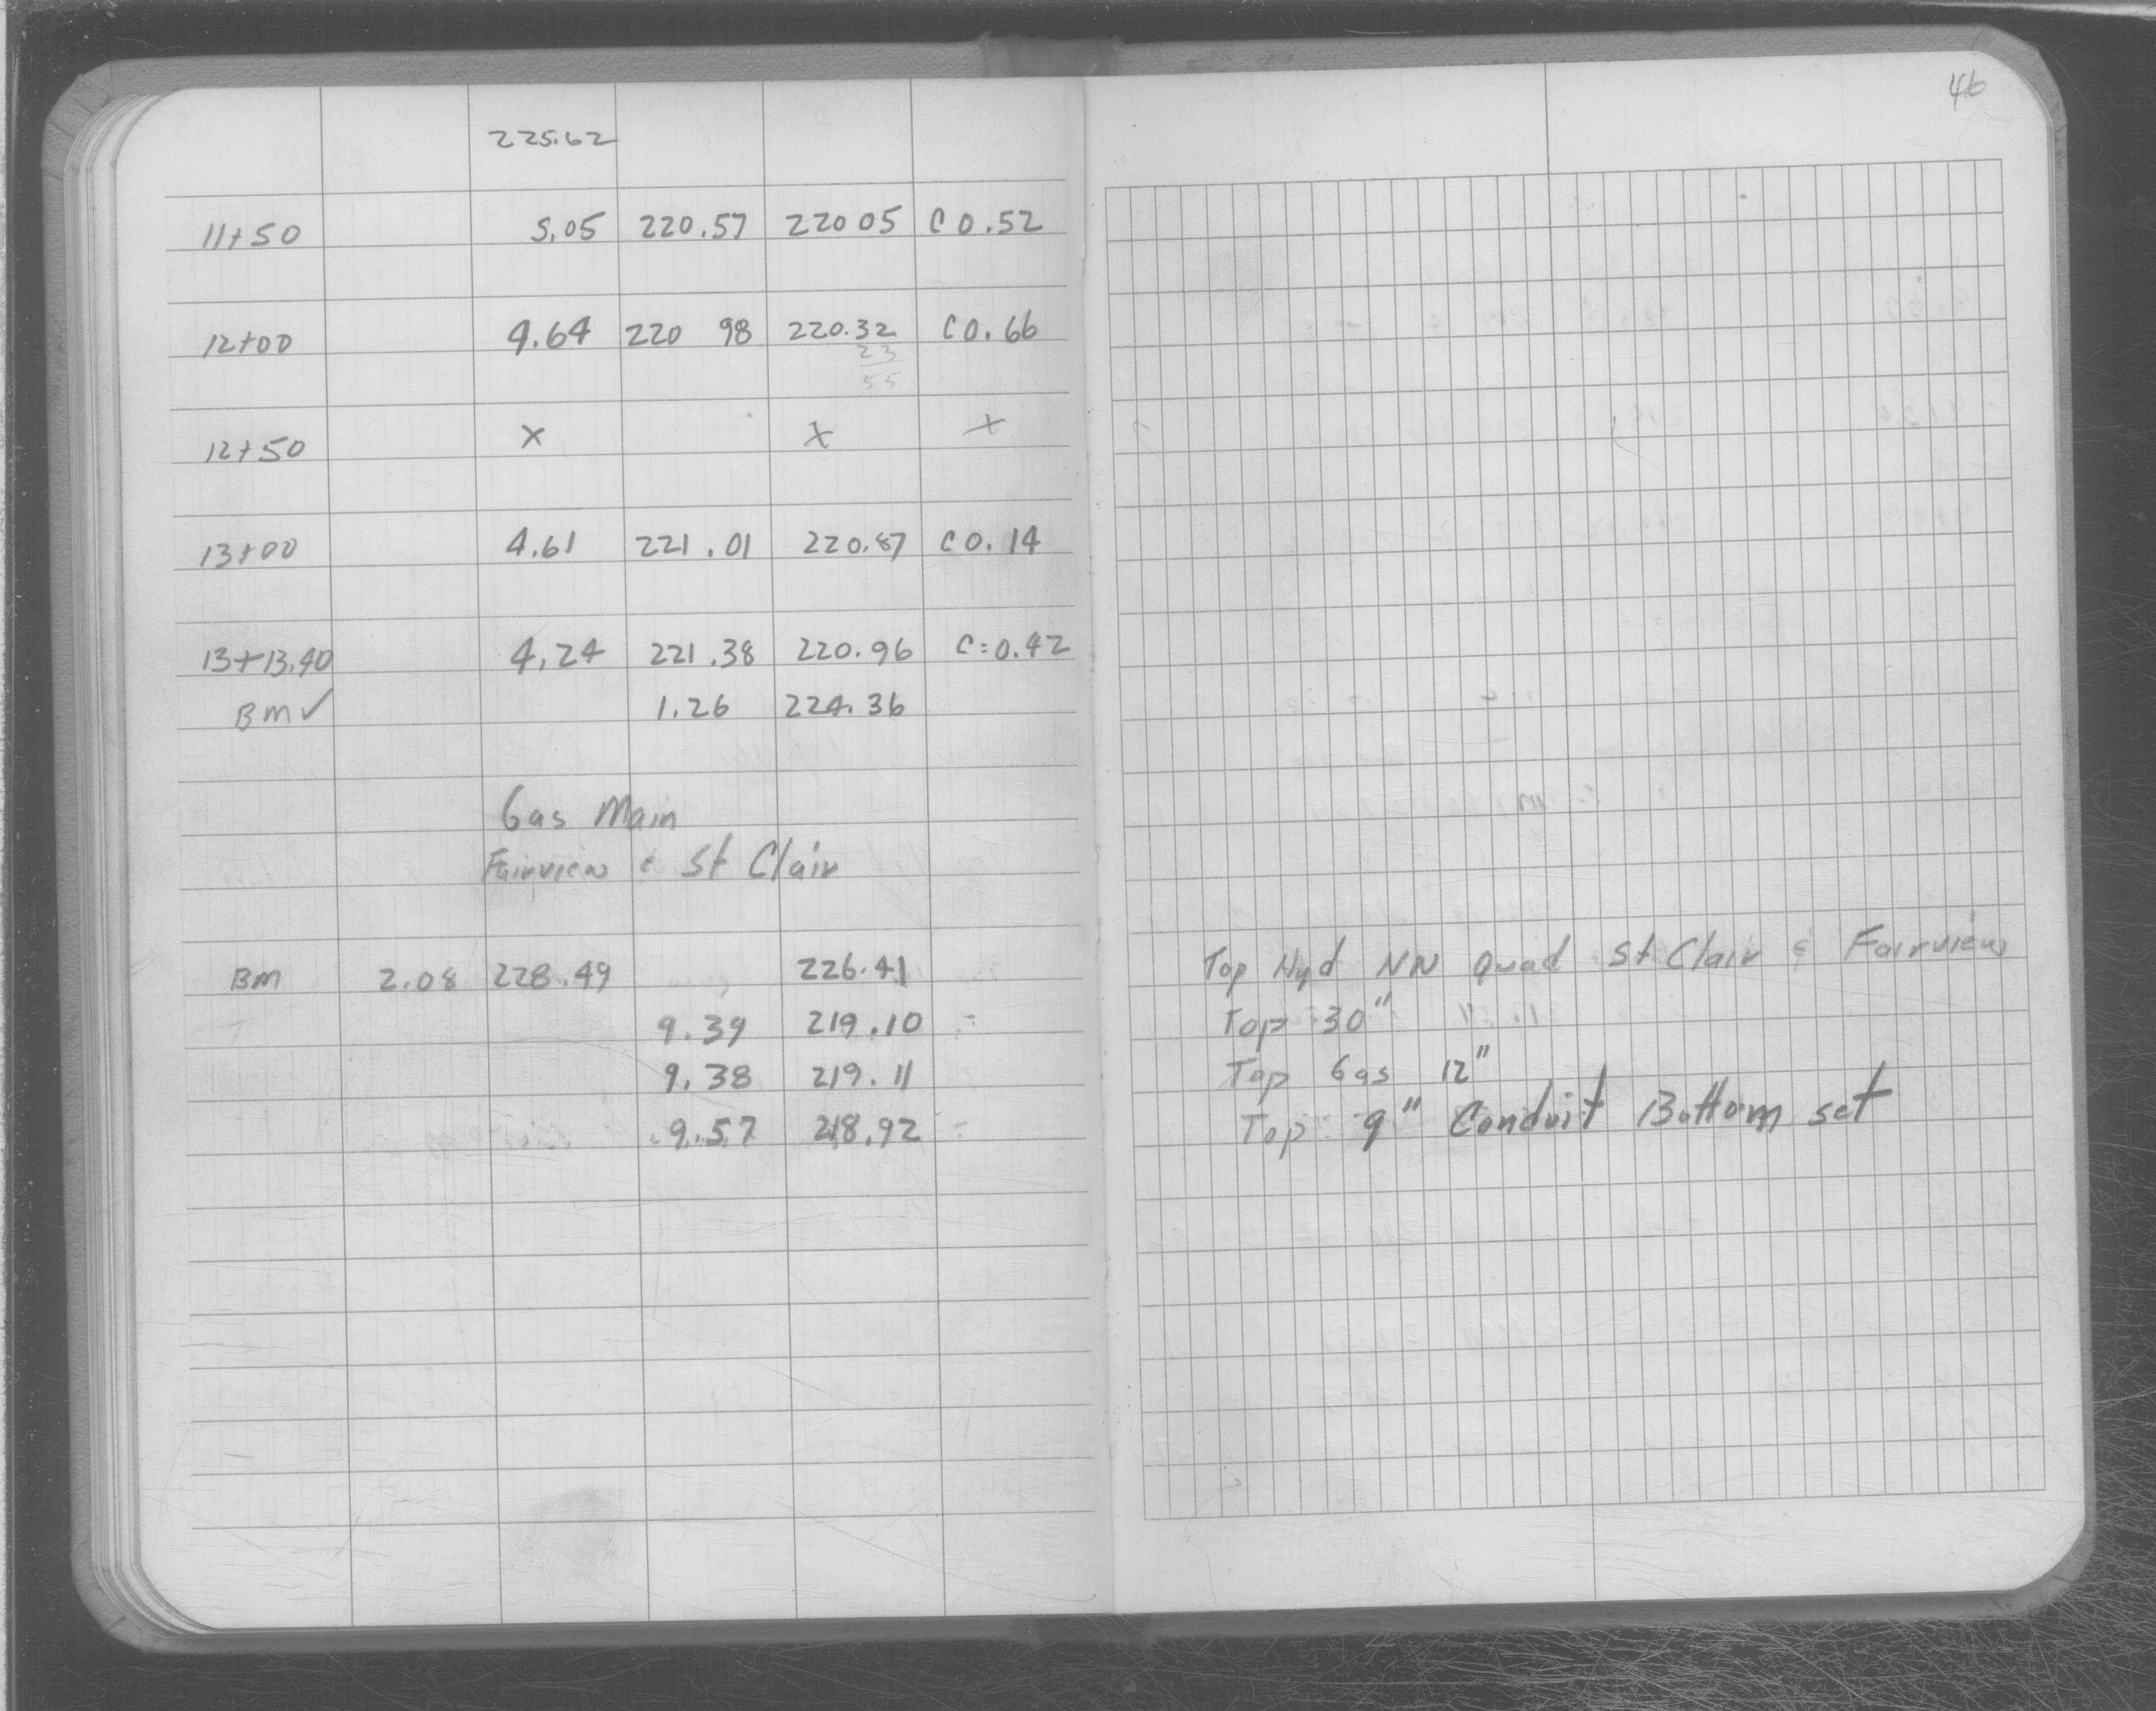 46
225.62
11+50 5.05 220.57 220 05 C 0.52
12+00 4.64 220 98 220.32 C 0.66
23
55
12+50 x x x
13+00 4.61 221.01 220.87 C 0.14
13+13.40 4.24 221.38 220.96 C=0.42
BM✓ 1.26 224.36
Gas Main
Fairview & St Clair
BM 2.08 228.49 226.41 Top Hyd NW Quad St Clair & Fairview
9.39 219.10 Top 30"
9.38 219.11 Top Gas 12"
9.57 218.92 Top 9" Conduit Bottom set